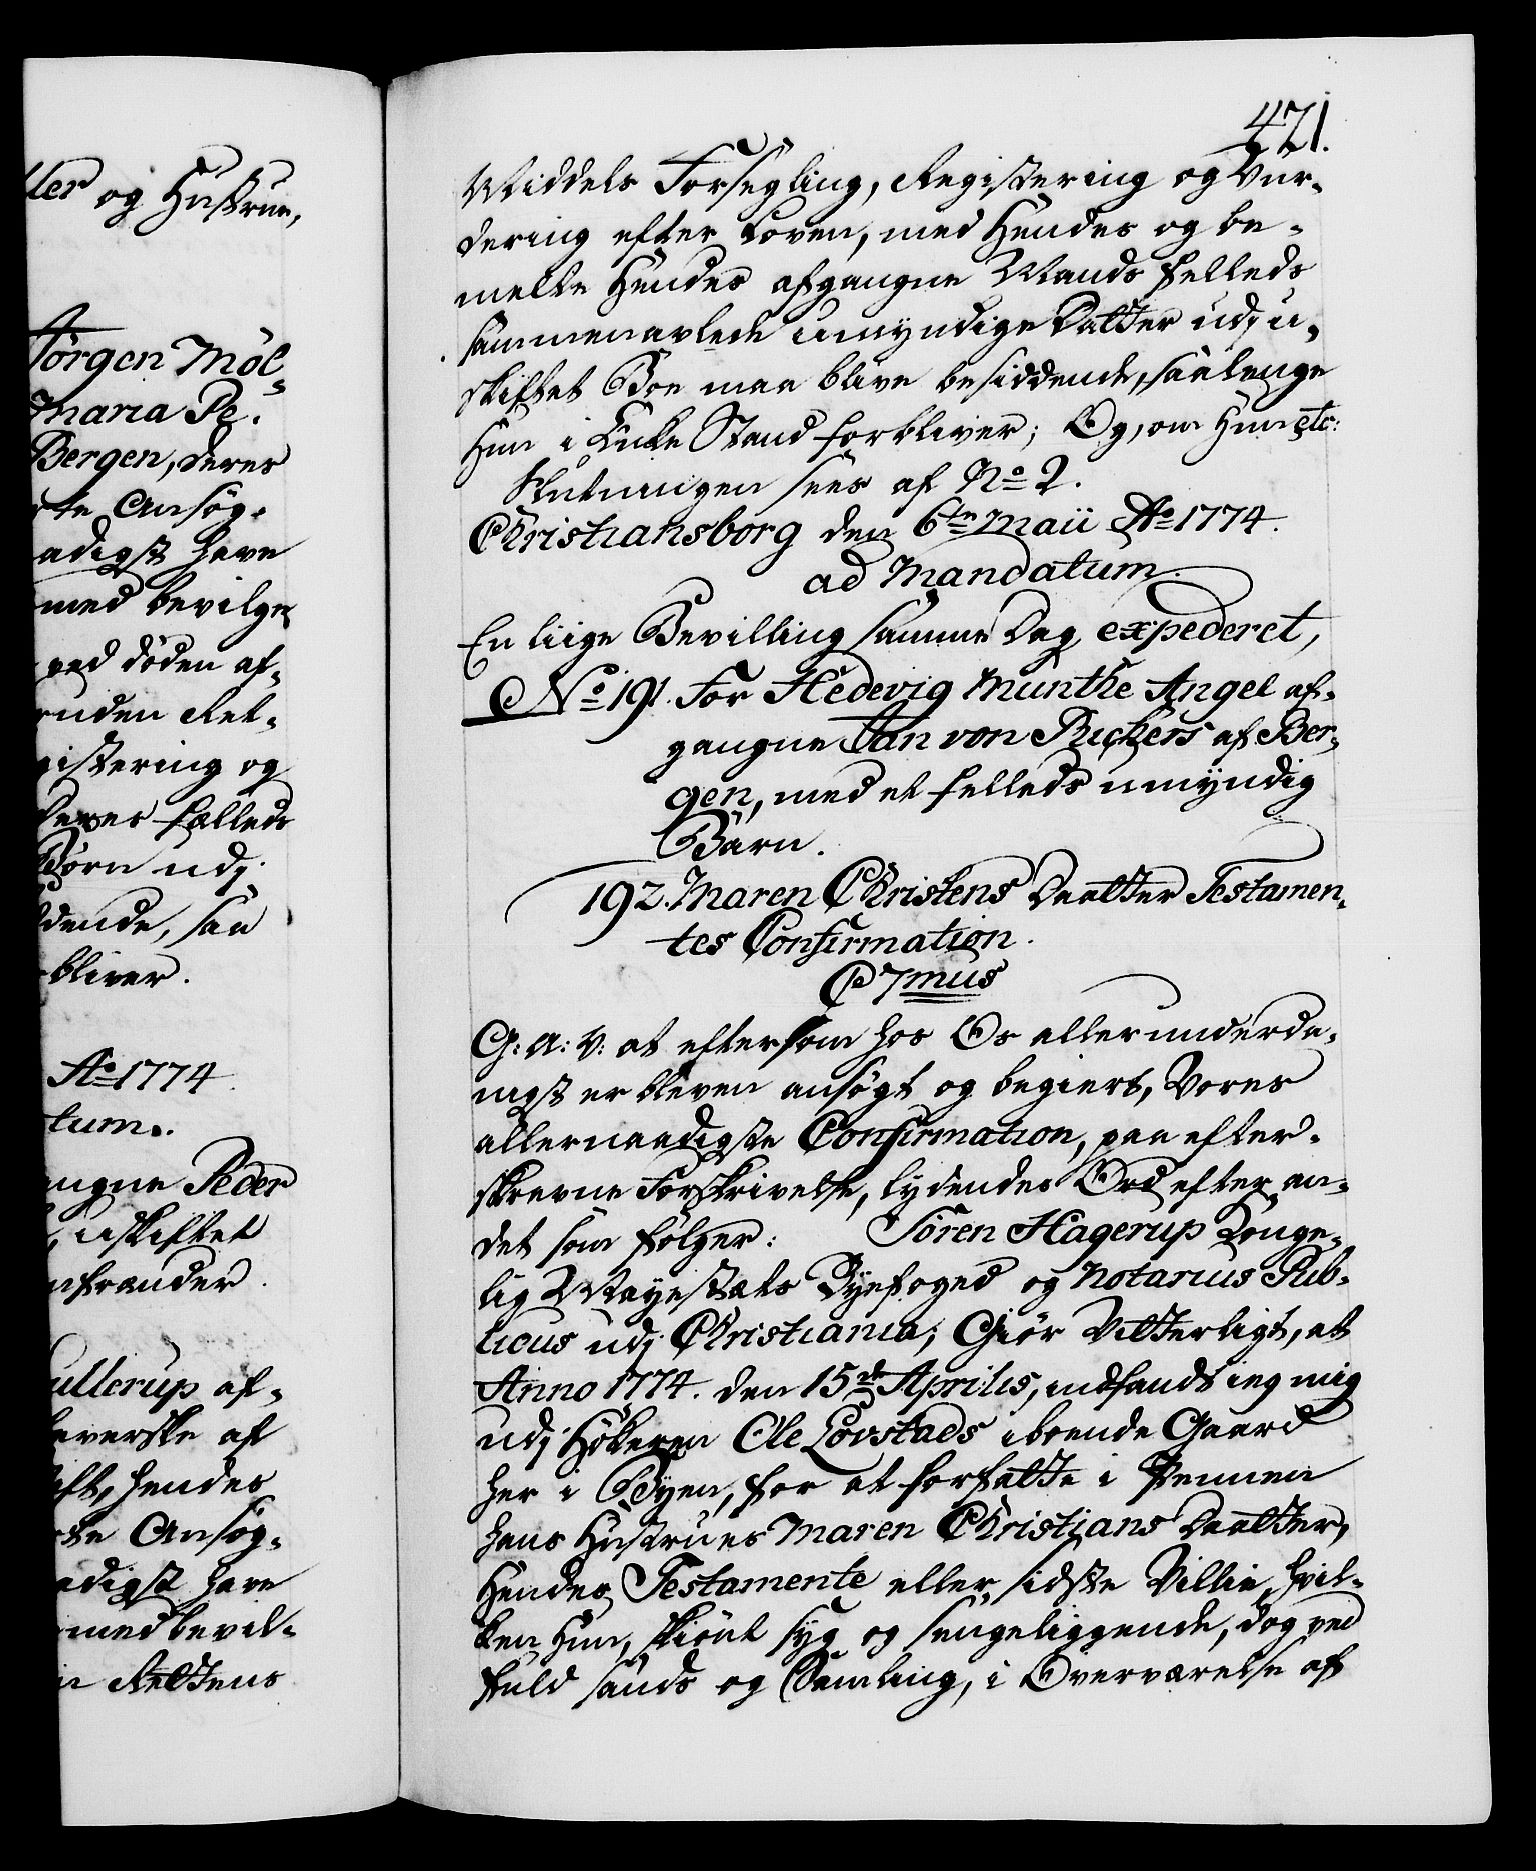 ller og Hustrue,
Jörgen Möl-
Maria Pe-
Bergen, deres
te Ansög-
adigst have
med bevilge
ved döden af-
enden Ret-
gistering og
deres fælleds
Börn udj
dende, saa
bliver.
Ao 1774
tum.
angne Peder
uskiftet
nfrænder.
ullerup af-
leverske af
ift, hendes
te Ansög-
adigst have
med bevil-
n Rettens
471.
Middels Forsegling, Registering og Vur-
dering efter Loven, med Hendes og be-
melte Hendes afgangne Mands felleds
sammenavlede umyndige Datter udj u-
skiftet Boe maa blive besiddende, saalenge
Hun i Enke Stand forbliver; Og, om Hun etc:
Slutningen sees af No 2.
Christiansborg den 6te Maii Ao 1774.
ad Mandatum.
En liige Bevilling samme Dag expederet,
No 191. For Hedevig Munthe Angel af-
gangne Jan von Ruckers af Ber-
gen, med et felleds umyndig
Barn.
192. Maren Christens Daatter Testamen-
tes Confirmation.
C 7mus
G: A: V: at eftersom hos Os allerunderda-
nigst er bleven ansögt og begiert, Vores
allernaadigste Confirmation, paa efter-
skrevne Forskrivelse, lydendes Ord efter an-
det som fölger: Sören Hagerup Konge-
lig Mayestæts Byefoged og Notarius Pub-
licus udj Christiania, Giör Vitterligt, at
Anno 1774. den 15de Aprilis, indfandt ieg mig
udj Hökeren Ole Lovstads iboende Gaard
her i Byen, for at forfatte i Pennen
hans Hustrues Maren Christians Daatter,
Hendes Testamente eller sidste Villie, hvil-
ken Hun, skiönt syg og sengeliggende, dog ved
fuld sands og Samling, i Overværelse af